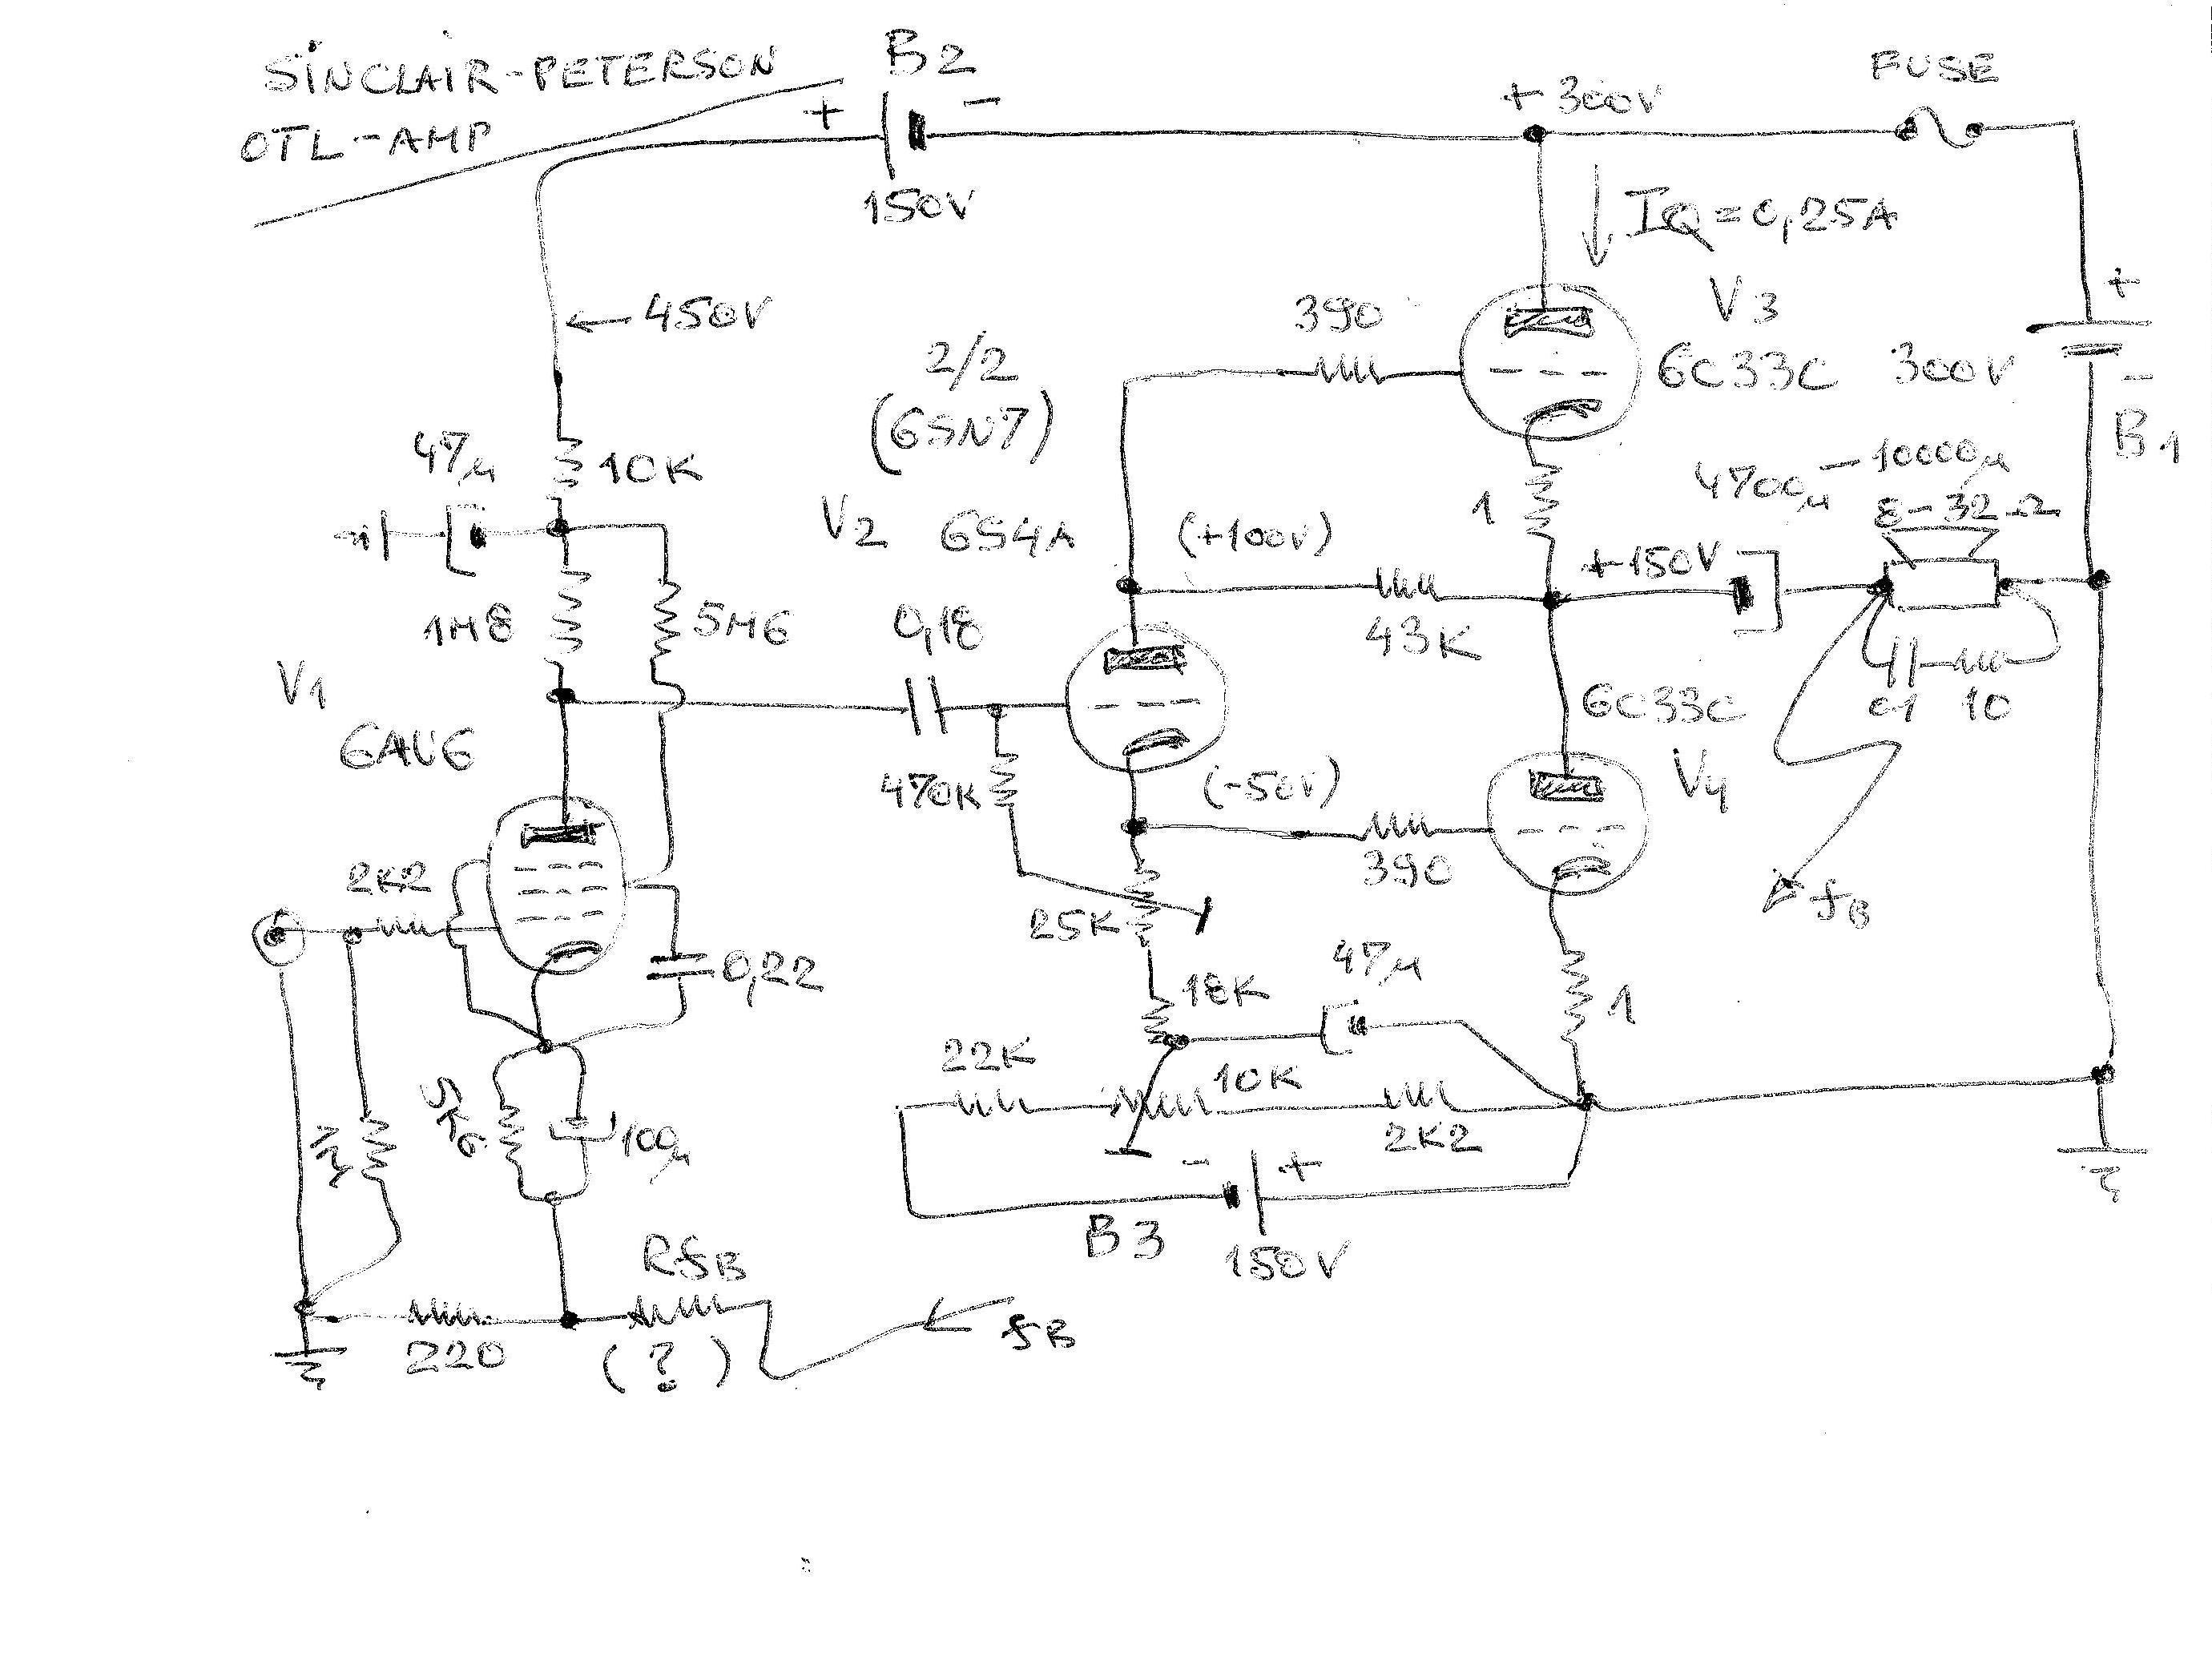 SINCLAIR-PETERSON
OTL-AMP
B2
+
-
150V
+300V
FUSE
IQ=0,25A
←450V
390
V3
6C33C
300V
+
-
B1
2/2
(6SN7)
47µ
10K
V2
6S4A
(+100V)
1
4700µ - 10000µ
8-32Ω
+150V
1M8
5M6
0,18
43K
V1
6AU6
6C33C
V4
01
10
470K
(-50V)
390
2K2
25K
fB
0,22
18K
47µ
1
22K
10K
2K2
5K6
100µ
-
+
B3
150V
RfB
220
(?)
fB